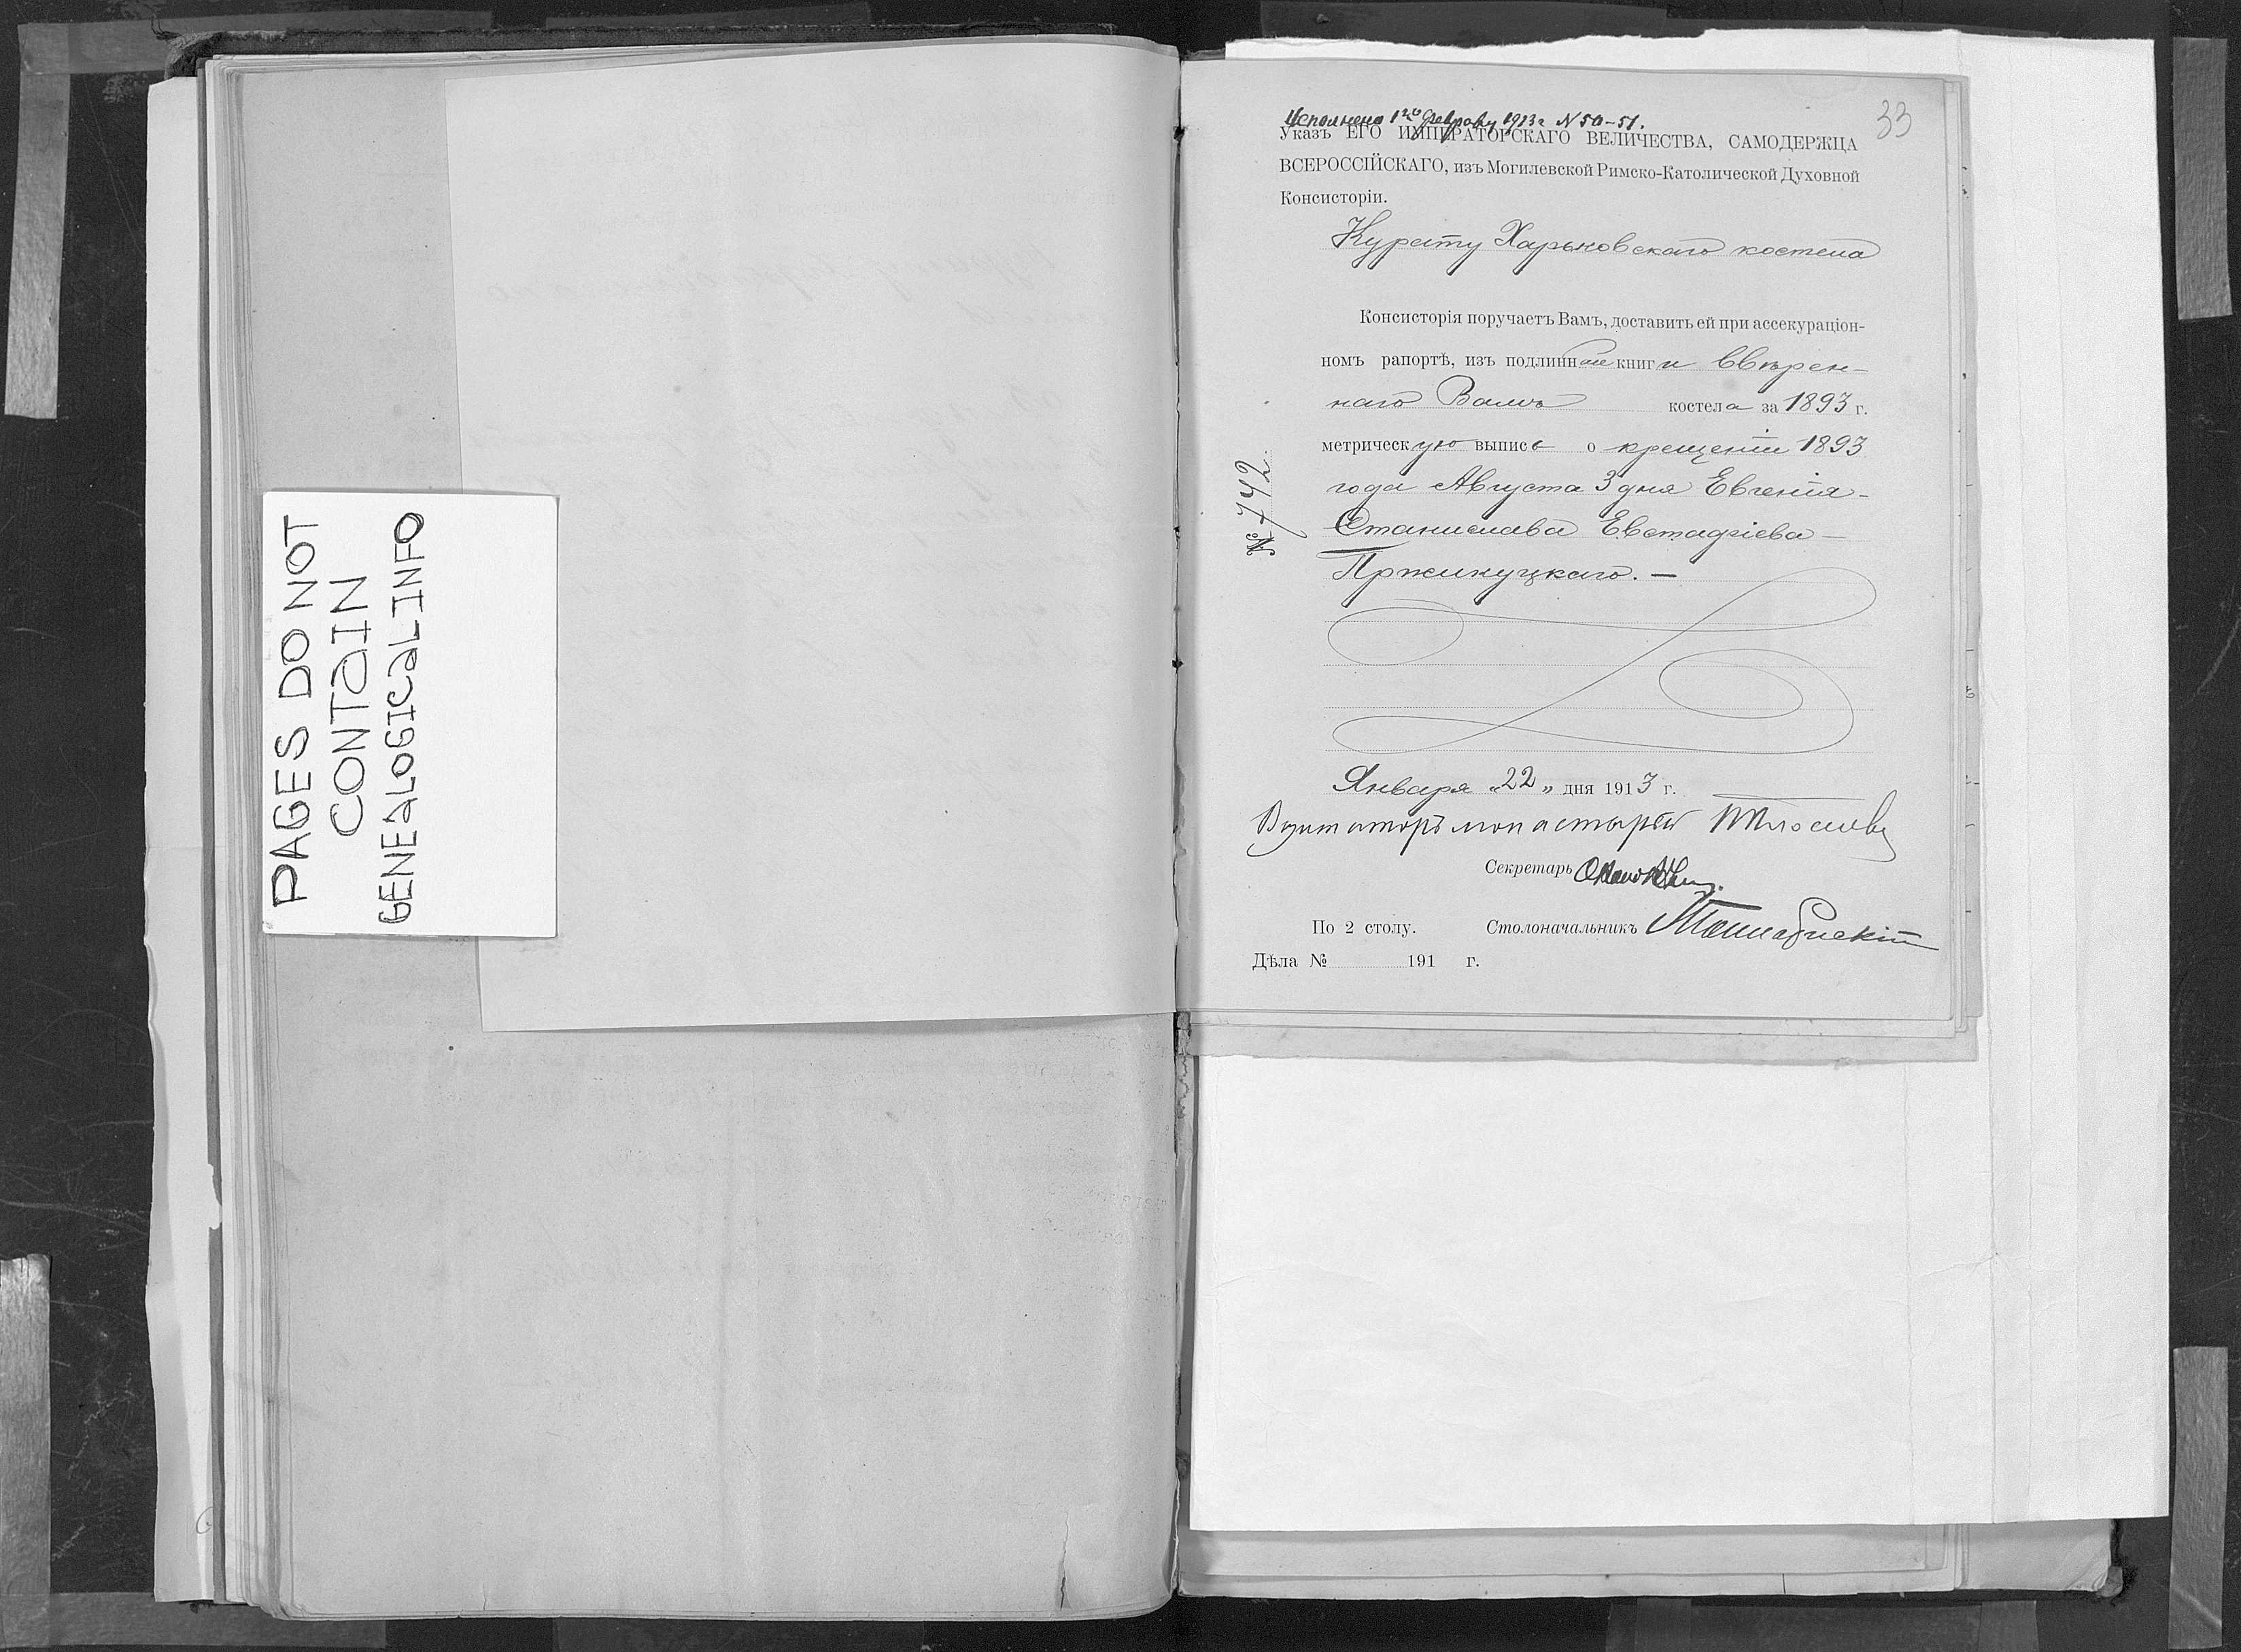 PAGES DO NOT
CONTAIN
GENEALOGICAL INFO
33
Исполнено 1го Февраля 1913 г. N 50-51.
Указъ ЕГО ИМПЕРАТОРСКАГО ВЕЛИЧЕСТВА, САМОДЕРЖЦА
ВСЕРОССІЙСКАГО, изъ Могилевской Римско-Католической Духовной
Консисторіи.
Курату Харьковскаго костела
Консисторія поручаетъ Вамъ, доставить ей при ассекураціон-
номъ рапортѣ, изъ подлинной книги ввѣрен-
наго Вамъ костела за 1893 г.
метрическую выпись о крещеніи 1893
года Августа 3 дня Евгенія-
Станислава Евстафіева
Пржилуцкаго. —
№ 742
Января „22" дня 1913 г.
Визитаторъ монастырей
Секретарь
По 2 столу. Столоначальникъ
Дѣла № 191 г.